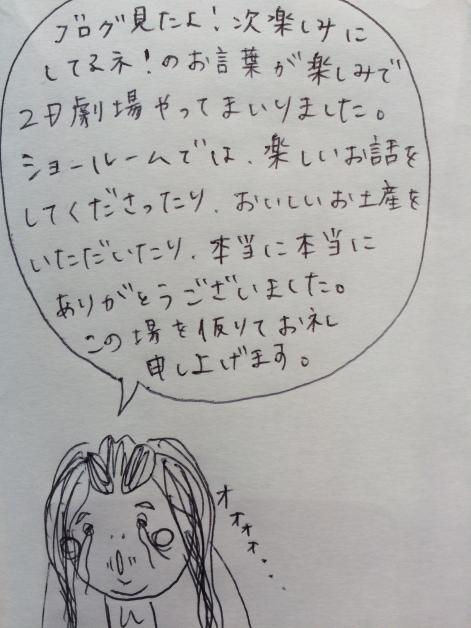 ブログ見たよ!次楽しみに
してるネ!のお言葉が楽しみで
2日劇場やってまいりました。
ショールームでは、楽しいお話を
してくださったり、おいしいお土産を
いただいたり、本当に本当に
ありがとうございました。
この場を仮りてお礼
申し上げます。
オォォォ....